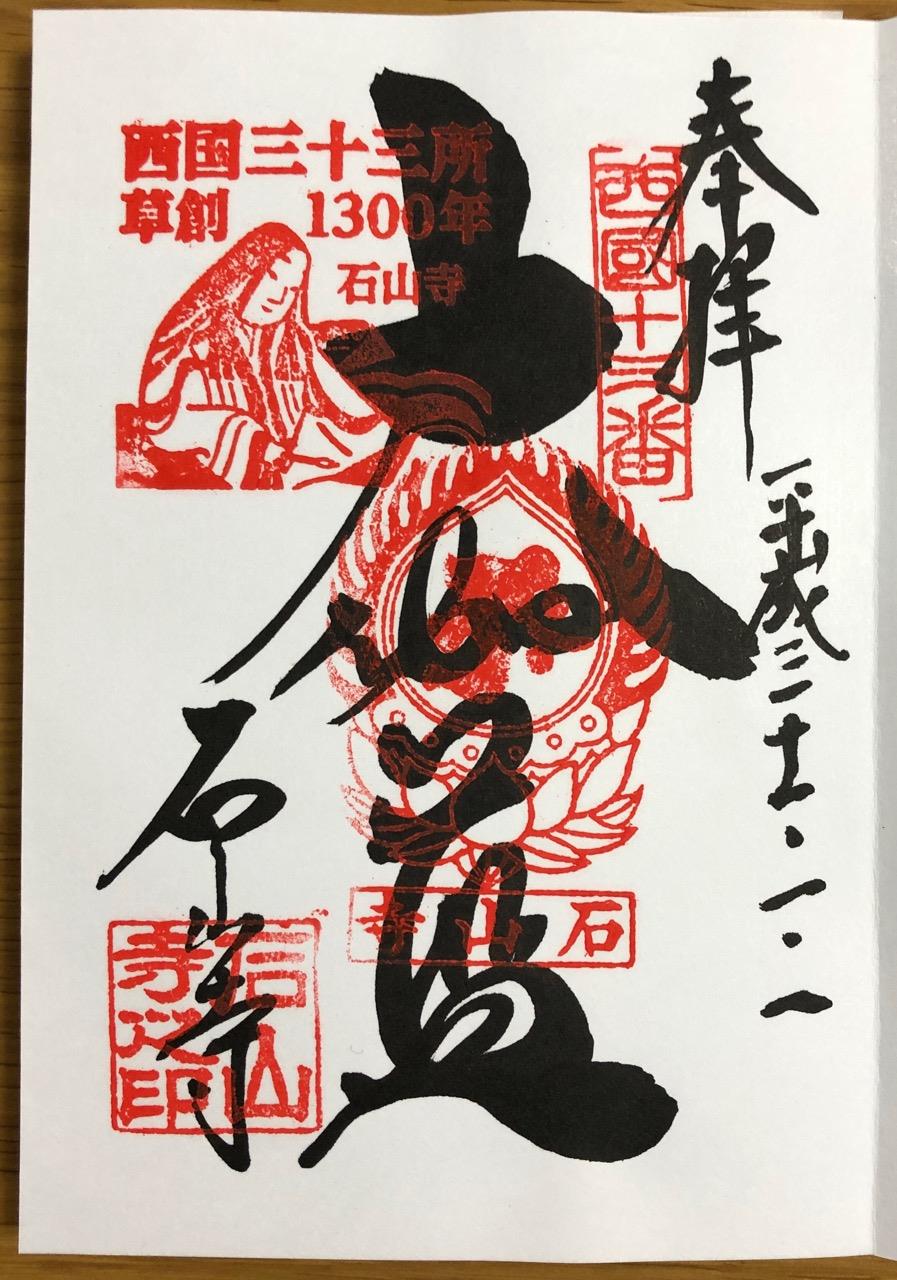 奉拝
平成三十一・一・一
西國十三番
西国三十三所
草創 1300年
石山寺
大伽藍
石山寺
石山寺
石山寺之印